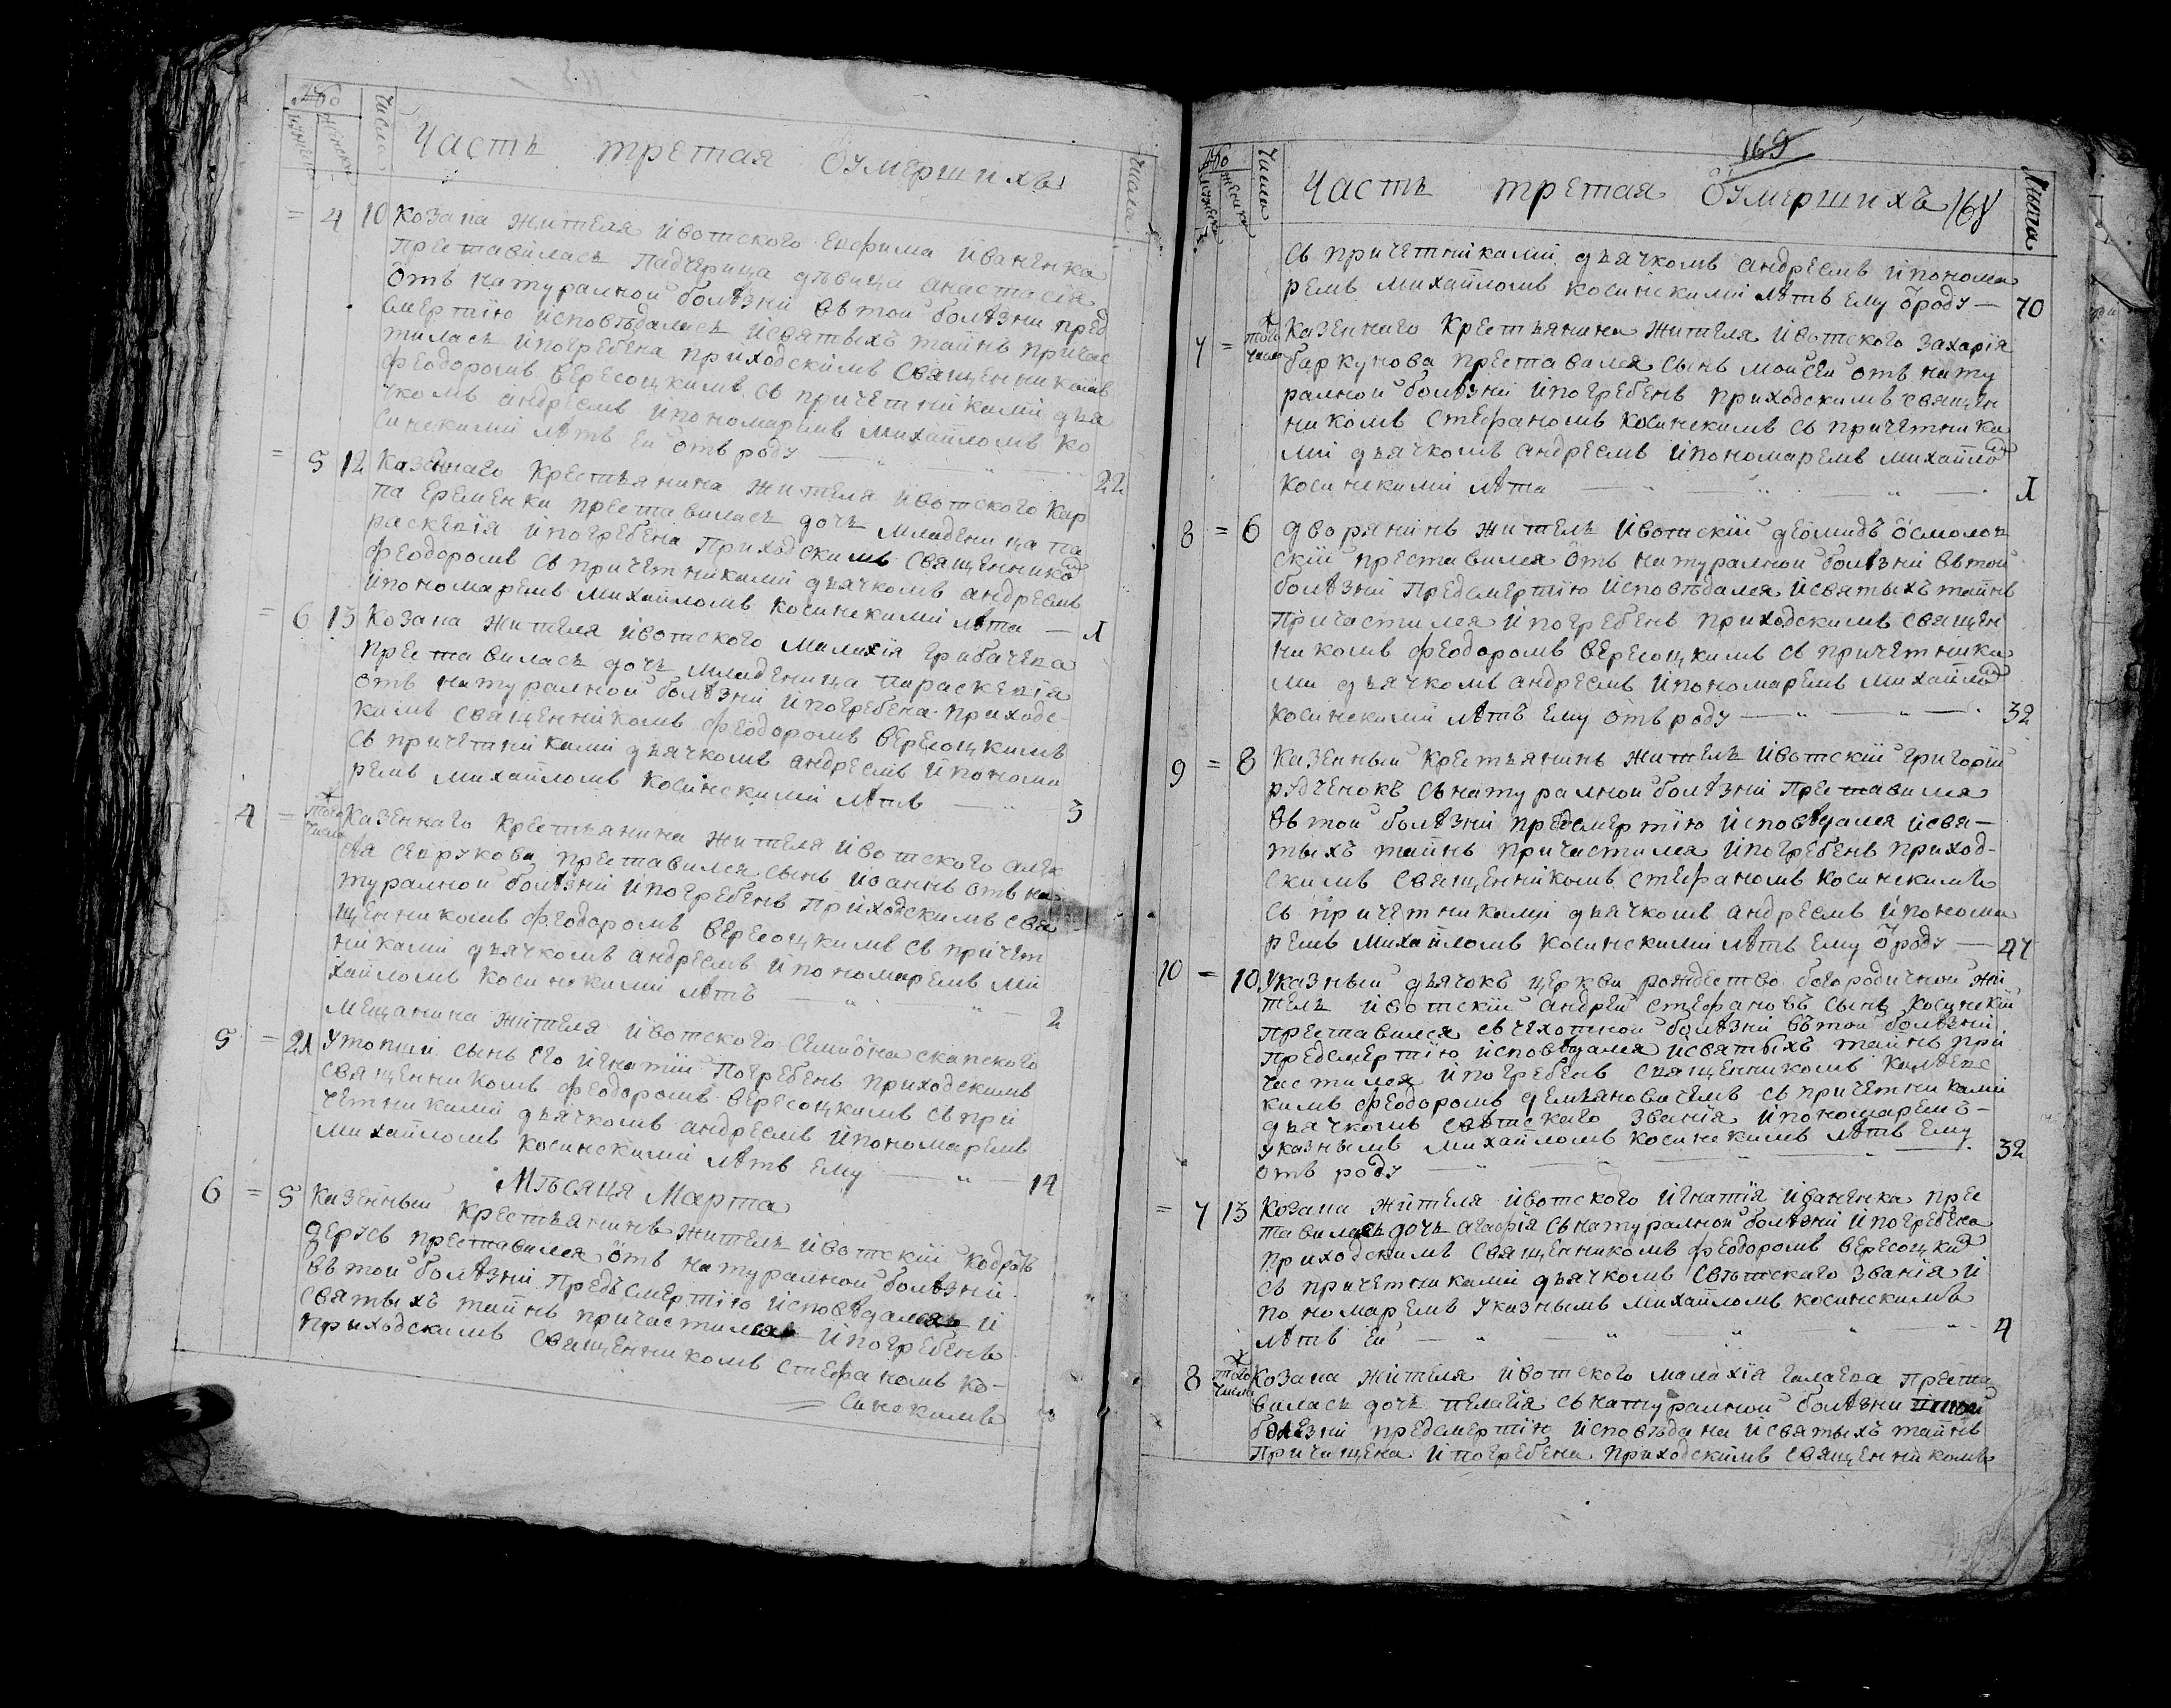 Часть третая оумершихъ
= 4 10 Козака жителя ивотского Евфима Иваненка
преставилась падчерица дѣвица Анастасія
отъ натуралной болѣзни въ той болѣзни пред
смертію исповѣдалась и святыхъ тайнъ причас
тилась и погребена приходскимъ священникомъ
Феодоромъ Вересоцкимъ съ причетниками дья
чкомъ Андреемъ и пономаремъ Михайломъ Ко
синскими лѣтъ ей отъ роду — 22
= 5 12 Казенного крестьянина жителя ивотского Кар
па Еременка преставилась дочь младеница Па
раскевія и погребена приходскимъ священником
Феодоромъ съ причетниками дьячкомъ Андреемъ
и пономаремъ Михайломъ Косинскими лѣта — 1
= 6 13 Козака жителя ивотского Малихія Грибачева
преставилась дочь младеница Параскевія
отъ натуралной болѣзни и погребена приходс-
кимъ священникомъ Феодоромъ Вересоцкимъ
съ причетниками дьячкомъ Андреемъ и понома
ремъ Михайломъ Косинскими лѣтъ — 3
4 = того числа Казенного крестьянина жителя ивотского Алек
сѣя преставился сынъ Иоаннъ отъ на
туралной болѣзни и погребенъ приходскимъ свя
щенникомъ Феодоромъ Вересоцкимъ съ причет
никами дьячкомъ Андреемъ и пономаремъ Ми
хайломъ Косинскими лѣтъ — 2
Мещанина жителя ивотского Симиона Скапского
5 = 21 утопший сынъ его Игнатій погребенъ приходскимъ
священникомъ Феодоромъ Вересоцкимъ съ при
четниками дьячкомъ Андреемъ и пономаремъ
Михайломъ Косинскими лѣтъ ему — 14
Мѣсяця Марта
6 = 5 Казенный крестьянинъ житель ивотскій Кодратъ
преставился отъ натуралной болѣзни
въ той болѣзни предъ смертію исповѣдался и
святыхъ тайнъ причастился и погребенъ
приходскимъ священникомъ Стефаномъ Ко-
синскимъ
169
Часть третая оумершихъ 168 Лѣта
съ причетниками дьячкомъ Андреемъ и понома
ремъ Михайломъ Косинскими лѣтъ ему ѿроду — 70
7 = того числа Казенного крестьянина жителя ивотского Захарія
Баркунова преставился сынъ Моисей отъ нату
ралной болѣзни и погребенъ приходскимъ священ
никомъ Стефаномъ Косинскимъ съ причетника
ми дьячкомъ Андреемъ и пономаремъ Михайлом
Косинскими лѣта — 1
8 = 6 Дворянинъ житель ивотскій Деомидъ Осмолов
скій преставился отъ натуралной болѣзни въ той
болѣзни предсмертію исповѣдался и святыхъ тайнъ
причастился и погребенъ приходскимъ священ
никомъ Феодоромъ Вересоцкимъ съ причетника
ми дьячкомъ Андреемъ и пономаремъ Михайлом
Косинскими лѣтъ ему отъ роду — 32
9 = 8 Казенный крестьянинъ житель ивотскій Григорій
Рудченокъ съ натуралной болѣзни преставился
въ той болѣзни предсмертію исповѣдался и свя-
тыхъ тайнъ причастился и погребенъ приход-
скимъ священникомъ Стефаномъ Косинскимъ
съ причетниками дьячкомъ Андреемъ и понома
ремъ Михайломъ Косинскими лѣтъ ему ѿроду — 47
10 = 10 Указный дьячокъ церкви рождество богородичной жи
тель ивотскій Андрей Стефановъ сынъ Косинскій
преставился съ чехотной болѣзни въ той болѣзни
предсмертію исповѣдался и святыхъ тайнъ при
частился и погребенъ священникомъ
кимъ Феодоромъ Демьяновичемъ съ причетниками
дьячкомъ свѣтскаго званія и пономаремъ-
указнымъ Михайломъ Косинскимъ лѣтъ ему
отъ роду — 32
= 7 13 Козака жителя ивотского Игнатія Иваненка прес
тавилась дочь Агафія съ натуралной болѣзни и погребена
приходскимъ священникомъ Феодоромъ Вересоцким
съ причетниками дьячкомъ свѣтскаго званія и
пономаремъ указнымъ Михайломъ Косинскимъ
лѣтъ ей — 4
8 того числа Козака жителя ивотского Малахія преста
вилась дочь Пелагія съ натуралной болѣзни
болѣзни предсмертію исповѣдана и святыхъ тайнъ
причащена и погребена приходскимъ священникомъ